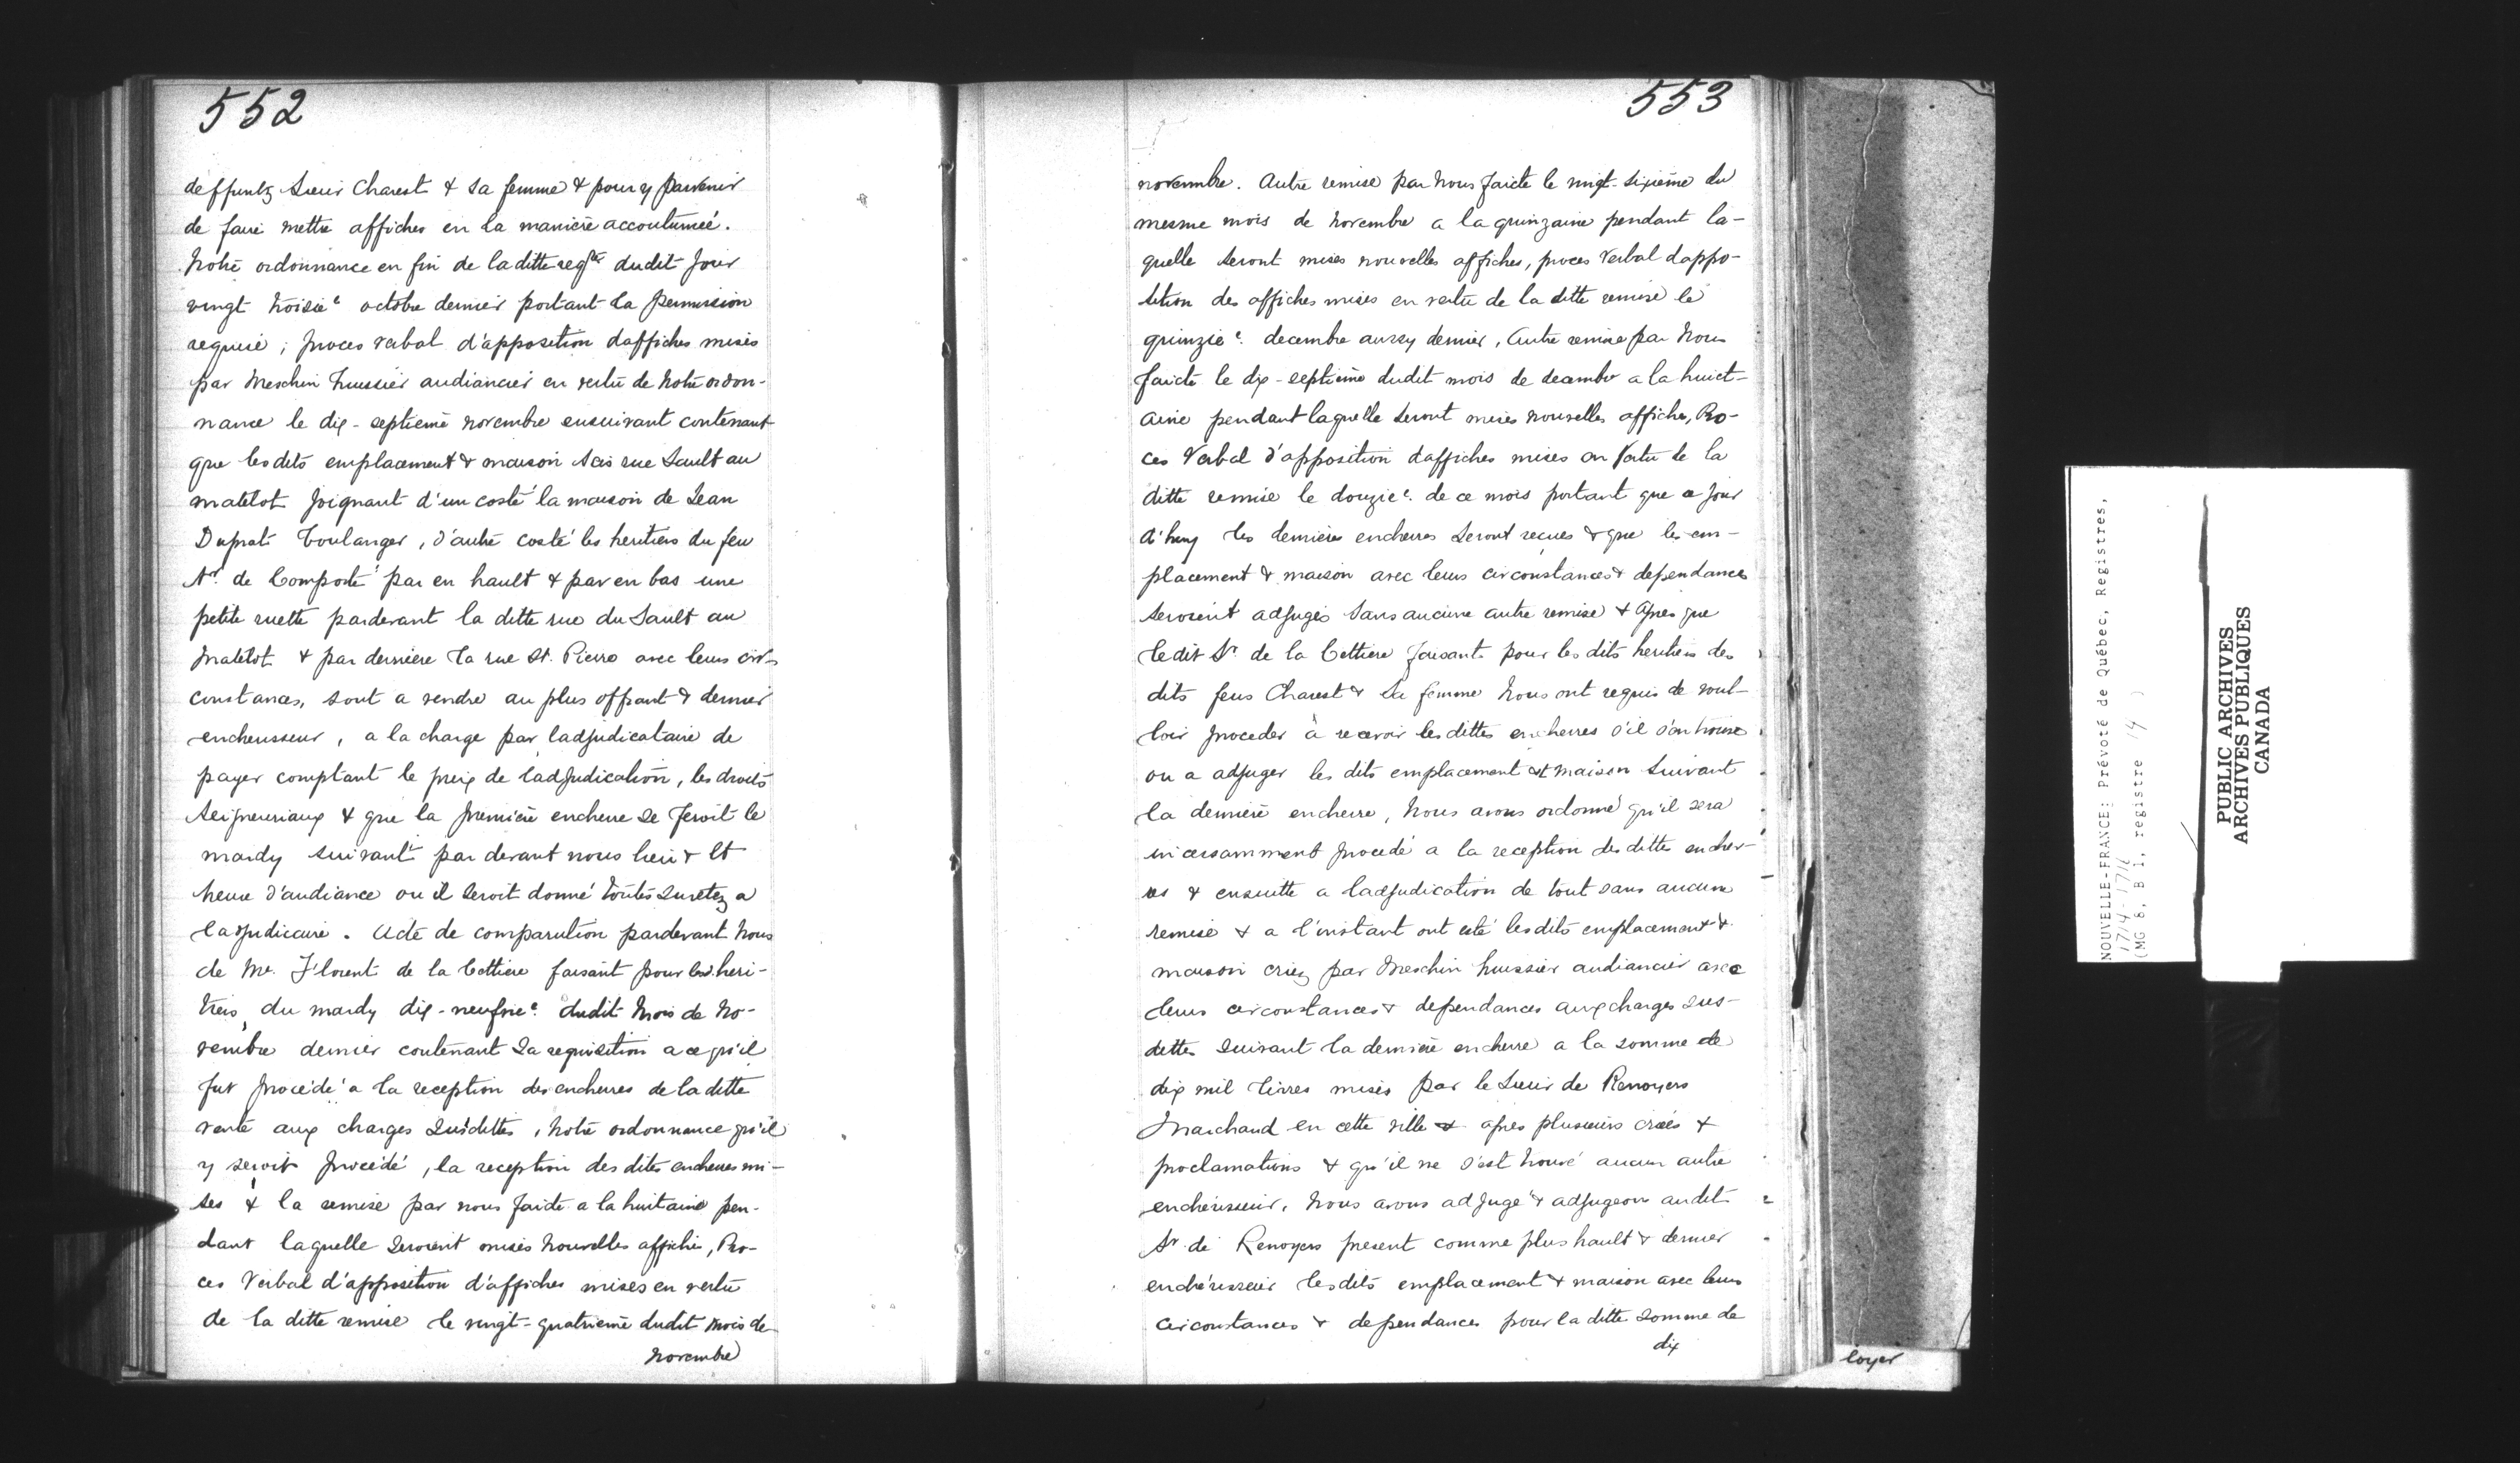 552
deffuntz Sieur Charest & sa femme & pour y parvenir
de faire mettre affiches en la maniere accoutumée.
Notre ordonnance en fin de la ditte reqte dudit jour
vingt troisie octobre dernier portant la permission
requise ; proces verbal d'apposition d'affiches mises
par Meschin huissier audiancier en vertu de notre ordon-
nance le dix-septieme novembre ensuivant contenant
que lesdits emplacement & maison scis rue Sault au
matelot joignant d'un costé la maison de Jean
Duprat boulanger, d'autre costé les heritiers du feu
Sr. de Comporté par en hault & par en bas une
petite ruette pardevant la ditte rue du Sault au
Matelot & par derriere la rue St. Pierre avec leurs cir-
constances, sont a vendre au plus offrant & dernier
encherisseur, a la charge par l'adjudicataire de
payer comptant le prix de ladjudication, les droits
seigneuriaux & que la premiere enchere se feroit le
mardy suivant par devant nous lieu & et
heure d'audiance ou il seroit donné toutes suretez a
l'adjudicaire. Acte de comparution pardevant nous
de Me. Florent de la Cettiere faisant pour lesd. heri-
tiers, du mardy dix-neufvie. dudit mois de no-
vembre dernier contenant sa requisition a ce qu'il
fut procédé a la reception des encheres de la ditte
vente aux charges susdittes, notre ordonnance qu'il
y seroit procédé, la reception des dites encheres mi-
ses & la remise par nous faicte a la huitaine pen-
dant laquelle seroient mises nouvelles affiches, Pro-
ces Verbal d'apposition d'affiches mises en vertu
de la ditte remise le vingt-quatrieme dudit mois de
novembre
553
novembre. Autre remise par nous faicte le vingt-sixieme du
mesme mois de novembre a la quinzaine pendant la-
quelle seront mises nouvelles affiches, proces verbal d'appo-
sition des affiches mises en vertu de la ditte remise le
quinzie. decembre aussy dernier, Autre remise par nous
faicte le dix-septieme dudit mois de decembre a la huict-
aine pendant laquelle seront mises nouvelles affiches, Pro-
ces Verbal d'apposition d'affiches mises en vertu de la
ditte remise le douzie. de ce mois portant que ce jour
d'huy les dernieres encheres seront reçues & que les em-
placement & maison avec leurs circonstances & dependances
seroient adjugés sans aucune autre remise & Apres que
ledit Sr. de la Cettiere faisant pour les dits heritiers des
dits feus Charest & sa femme nous ont requis de voul-
loir proceder à recevoir les dittes encherres s'il s'en trouve
ou a adjuger les dits emplacement et maison suivant
la derniere encherre, nous avons ordonné qu'il sera
incessamment procedé a la reception des dittes encher-
es & ensuitte a ladjudication de tout sans aucune
remise & a l'instant ont esté lesdits emplacement &
maison criez par Meschin huissier audiancier avec
leurs circonstances & dependances aux charges sus-
dittes suivant la derniere encherre a la somme de
dix mil livres mises par le Sieur de Renoyers
Marchand en cette ville & apres plusieurs criées &
proclamations & qu'il ne s'est trouvé aucun autre
encherisseur, nous avons adjugé & adjugeons audit
Sr. de Renoyers present comme plus hault & dernier
enchérisseur lesdits emplacement & maison avec leurs
circonstances & dependances pour la ditte somme de
dix
loyer
NOUVELLE-FRANCE: Prévoté de Québec, Registres,
(MG 8, B 1, registre )
PUBLIC ARCHIVES
ARCHIVES PUBLIQUES
CANADA